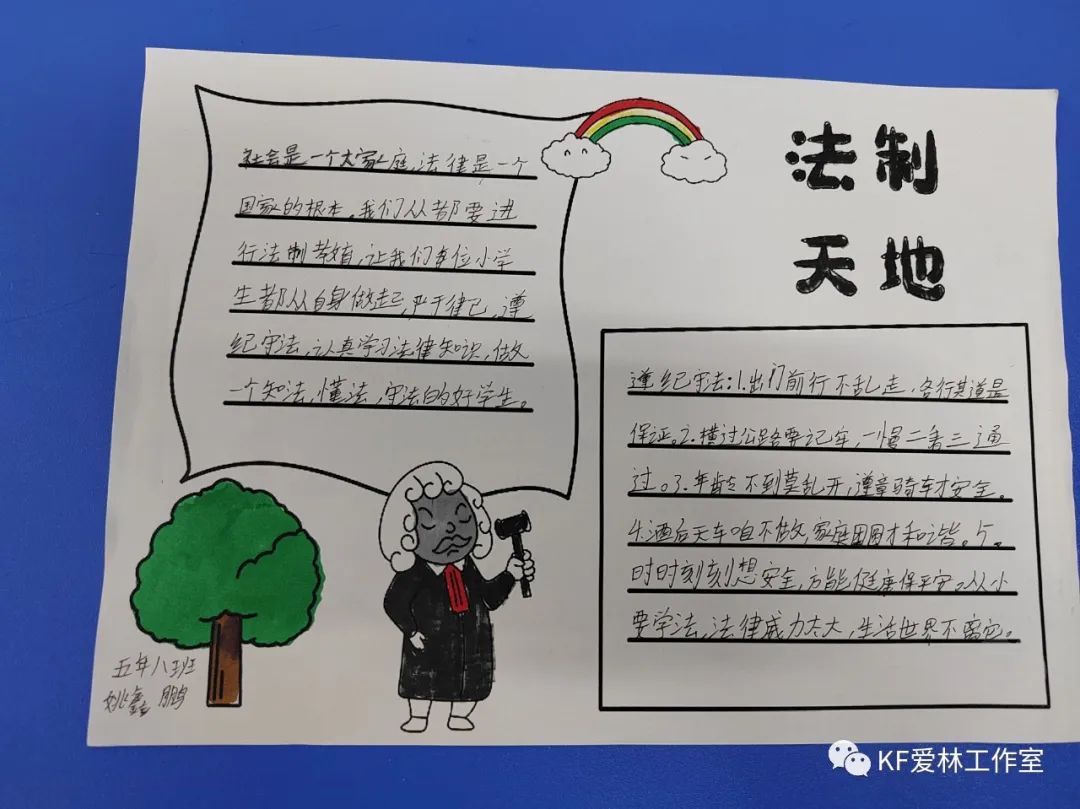 法制
天地
社会是一个大家庭,法律是一个
国家的根本。我们从都要进
行法制教育,让我们各位小学
生都从自身做起,严于律己,遵
纪守法,认真学习法律知识,做
一个知法,懂法,守法的好学生。
遵纪守法:1.出门前行不乱走,各行其道是
保证。2.横过公路要记牢,一慢二看三通
过。3.年龄不到莫乱开,遵章骑车才安全。
4.酒后天车咱不做,家庭团圆才和谐。5.
时时刻刻想安全,方能健康保平安。从小
要学法,法律威力太大,生活世界不离它。
五年八班
姚鑫鹏
KF爱林工作室